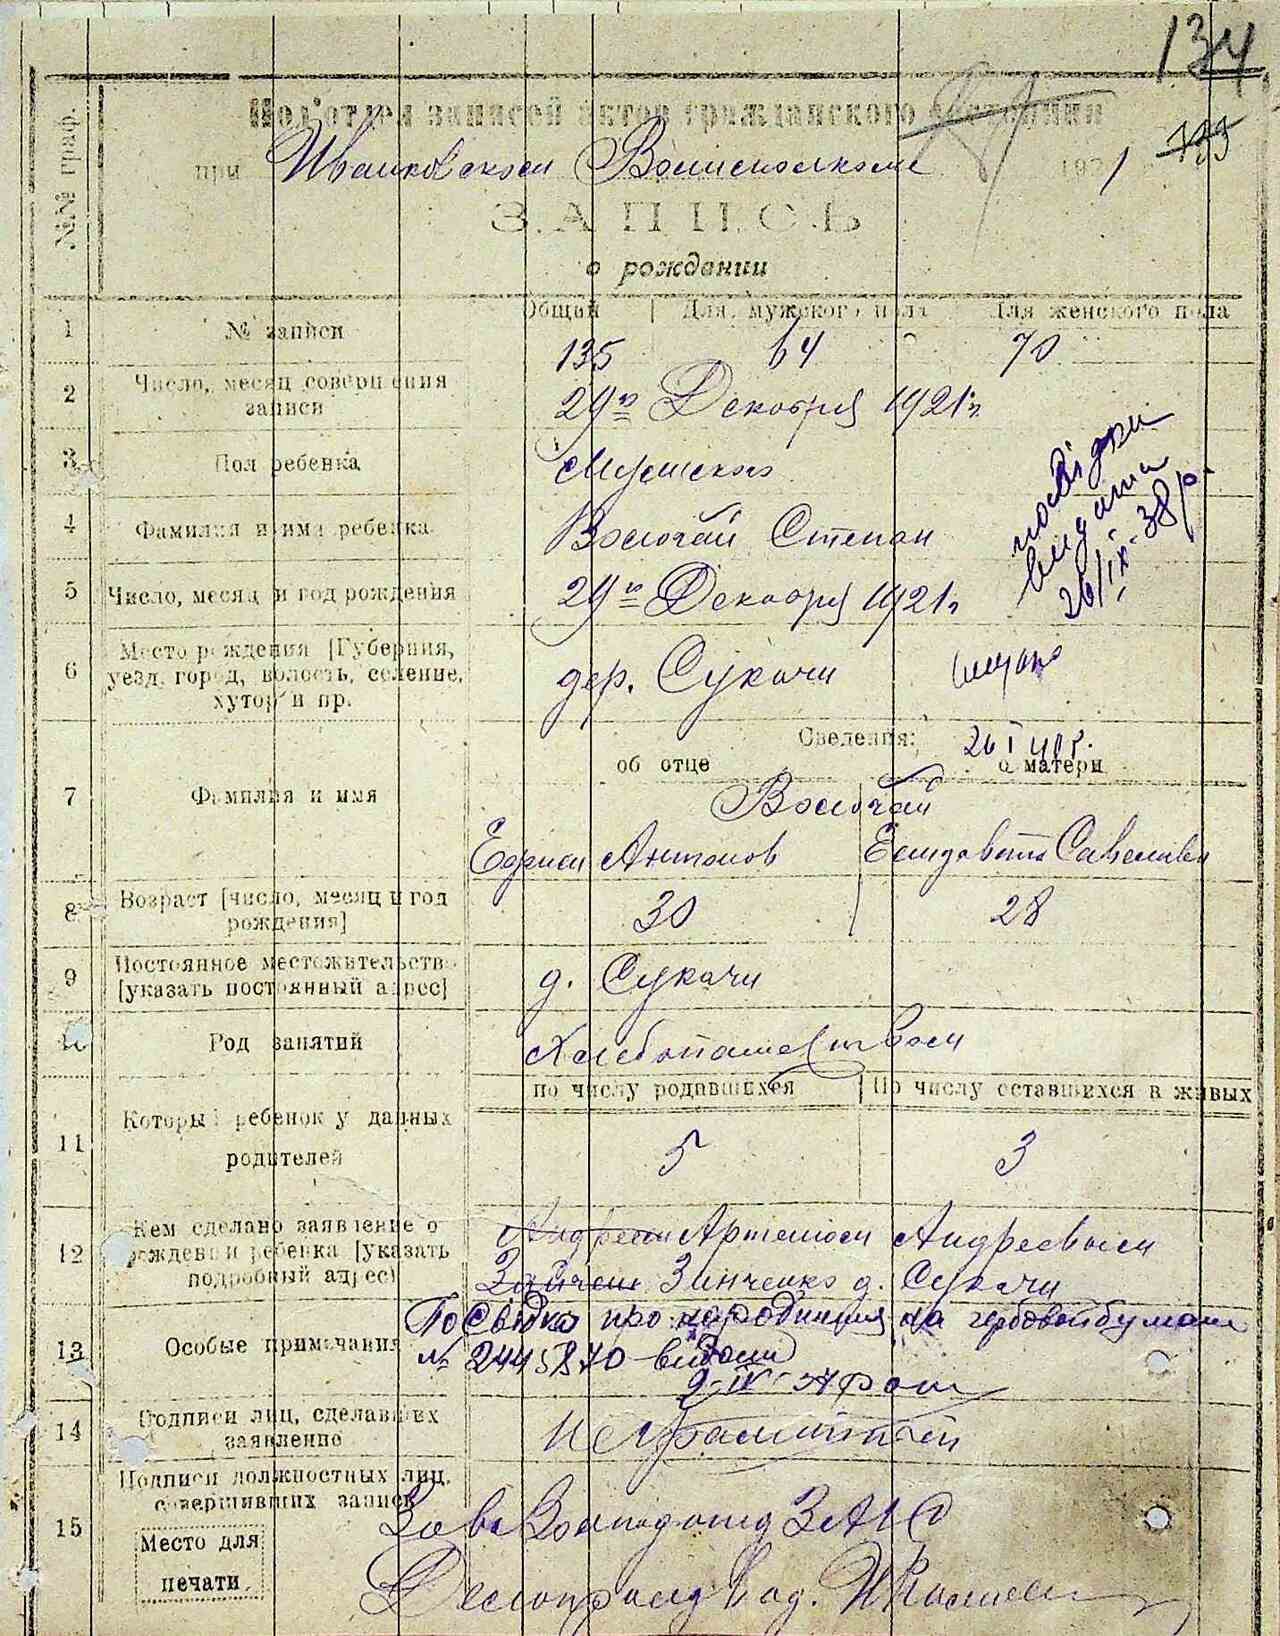 134
Под'отдел записей актов гражданского состояния
133
при Иванковском Волисполкоме 1921
ЗАПИСЬ
о рождении
№№ граф.
Общий Для мужского пола Для женского пола
1 № записи 135 64 70
2 Число, месяц совершения записи 29го Декабря 1921 г.
3 Пол ребенка Мужского
4 Фамилия и имя ребенка Волочай Степан
посвідки видана 26/IX-38 р.
5 Число, месяц и год рождения 29го Декабря 1921 г.
6 Место рождения [Губерния, уезд, город, волость, селение, хутор и пр. дер. Сукачи
Сведения: 26 I 40 р.
об отце о матери
7 Фамилия и имя Волочай
Антонов Елизавета Савельева
8 Возраст [число, месяц и год рождения] 30 28
9 Постоянное местожительство [указать постоянный адрес] д. Сукачи
10 Род занятий Хлебопашеством
по числу родавшихся По числу оставшихся в живых
11 Который ребенок у данных родителей 5 3
12 Кем сделано заявление о рождении ребенка [указать подробный адрес]
Андреем Артемом Андреевым
Зинченко д. Сукачи
13 Особые примечания Посвідка про народження на гербовой бумаге
№ 2445870 видано
14 Подписи лиц, сделавших заявление Неграмотный
15 Подписи должностных лиц, совершивших запись
Зав. Волподотд ЗАГС
Место для печати
Делопроизвод.